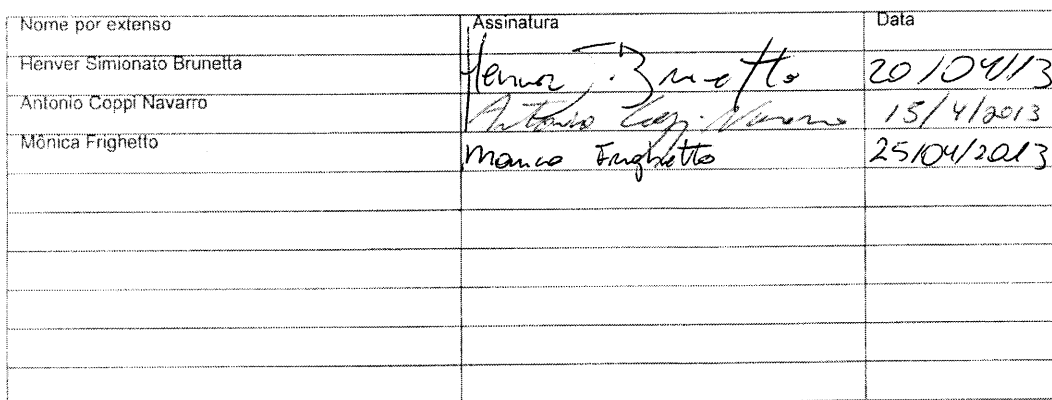 Nome por extenso Assinatura Data
Henver Simionato Brunetta Henver S. Brunetta 20/04/13
Antonio Coppi Navarro Antonio Coppi Navarro 15/4/2013
Mônica Frighetto Monica Frighetto 25/04/2013